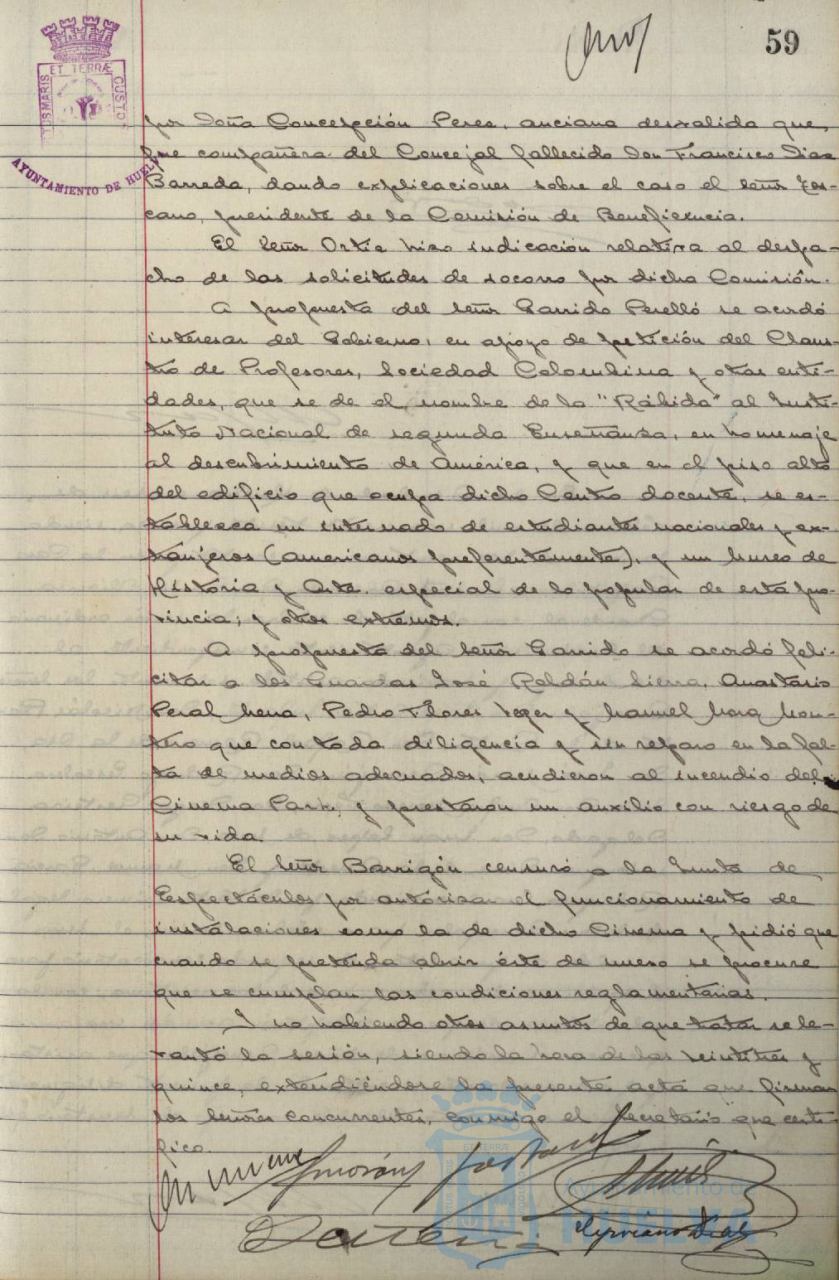 59
PORTUS MARIS ET TERRÆ CUSTODIA
AYUNTAMIENTO DE HUELVA
por Doña Concepción Perez, anciana desvalida que
fue compañera del Concejal fallecido Don Francisco Diaz
Barreda, dando explicaciones sobre el caso el Señor Tos-
cano, presidente de la Comisión de Beneficencia.
El Señor Ortiz hizo indicación relativa al despa-
cho de las solicitudes de socorro por dicha Comisión.
A propuesta del Señor Garrido Perelló se acordó
interesar del Gobierno, en apoyo de petición del Claus-
tro de Profesores, Sociedad Colombina y otras enti-
dades, que se de el nombre de la "Rábida" al Insti-
tuto Nacional de segunda Enseñanza, en homenaje
al descubrimiento de América, y que en el piso alto
del edificio que ocupa dicho Centro docente, se es-
tablezca un internado de estudiantes nacionales y ex-
tranjeros (americanos preferentemente), y un Museo de
Historia y Arte, especial de lo popular de esta pro-
vincia; y otros extremos.
A propuesta del Señor Garrido se acordó feli-
citar a los Guardas José Roldán Sierra, Anastasio
Peral Mena, Pedro Flores Veger y Manuel Mora Mon-
tero que con toda diligencia y sin reparo en la fal-
ta de medios adecuados, acudieron al incendio del
Cinema Park, y prestaron un auxilio con riesgo de
su vida.
El Señor Barrigón censuró a la Junta de
Espectáculos por autorizar el funcionamiento de
instalaciones como la de dicho Cinema y pidió que
cuando se pretenda abrir éste de nuevo se procure
que se cumplan las condiciones reglamentarias.
Y no habiendo otros asuntos de que tratar se le-
vantó la sesión, siendo la hora de las veintitres y
quince, extendiéndose la presente acta que firman
los Señores concurrentes, conmigo el Secretario que certi-
fico.
Cipriano Diaz
Ayuntamiento de
HUELVA